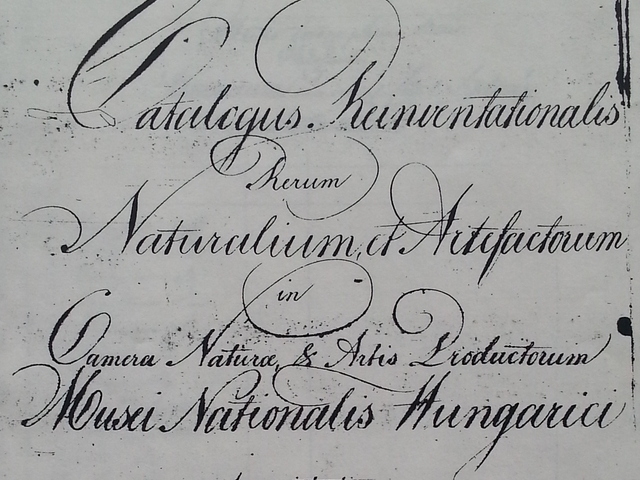 Catalogus Reinventationalis
Rerum
Naturalium, et Artefactorum
in
Camera Naturæ, & Artis Productorum
Musei Nationalis Hungarici